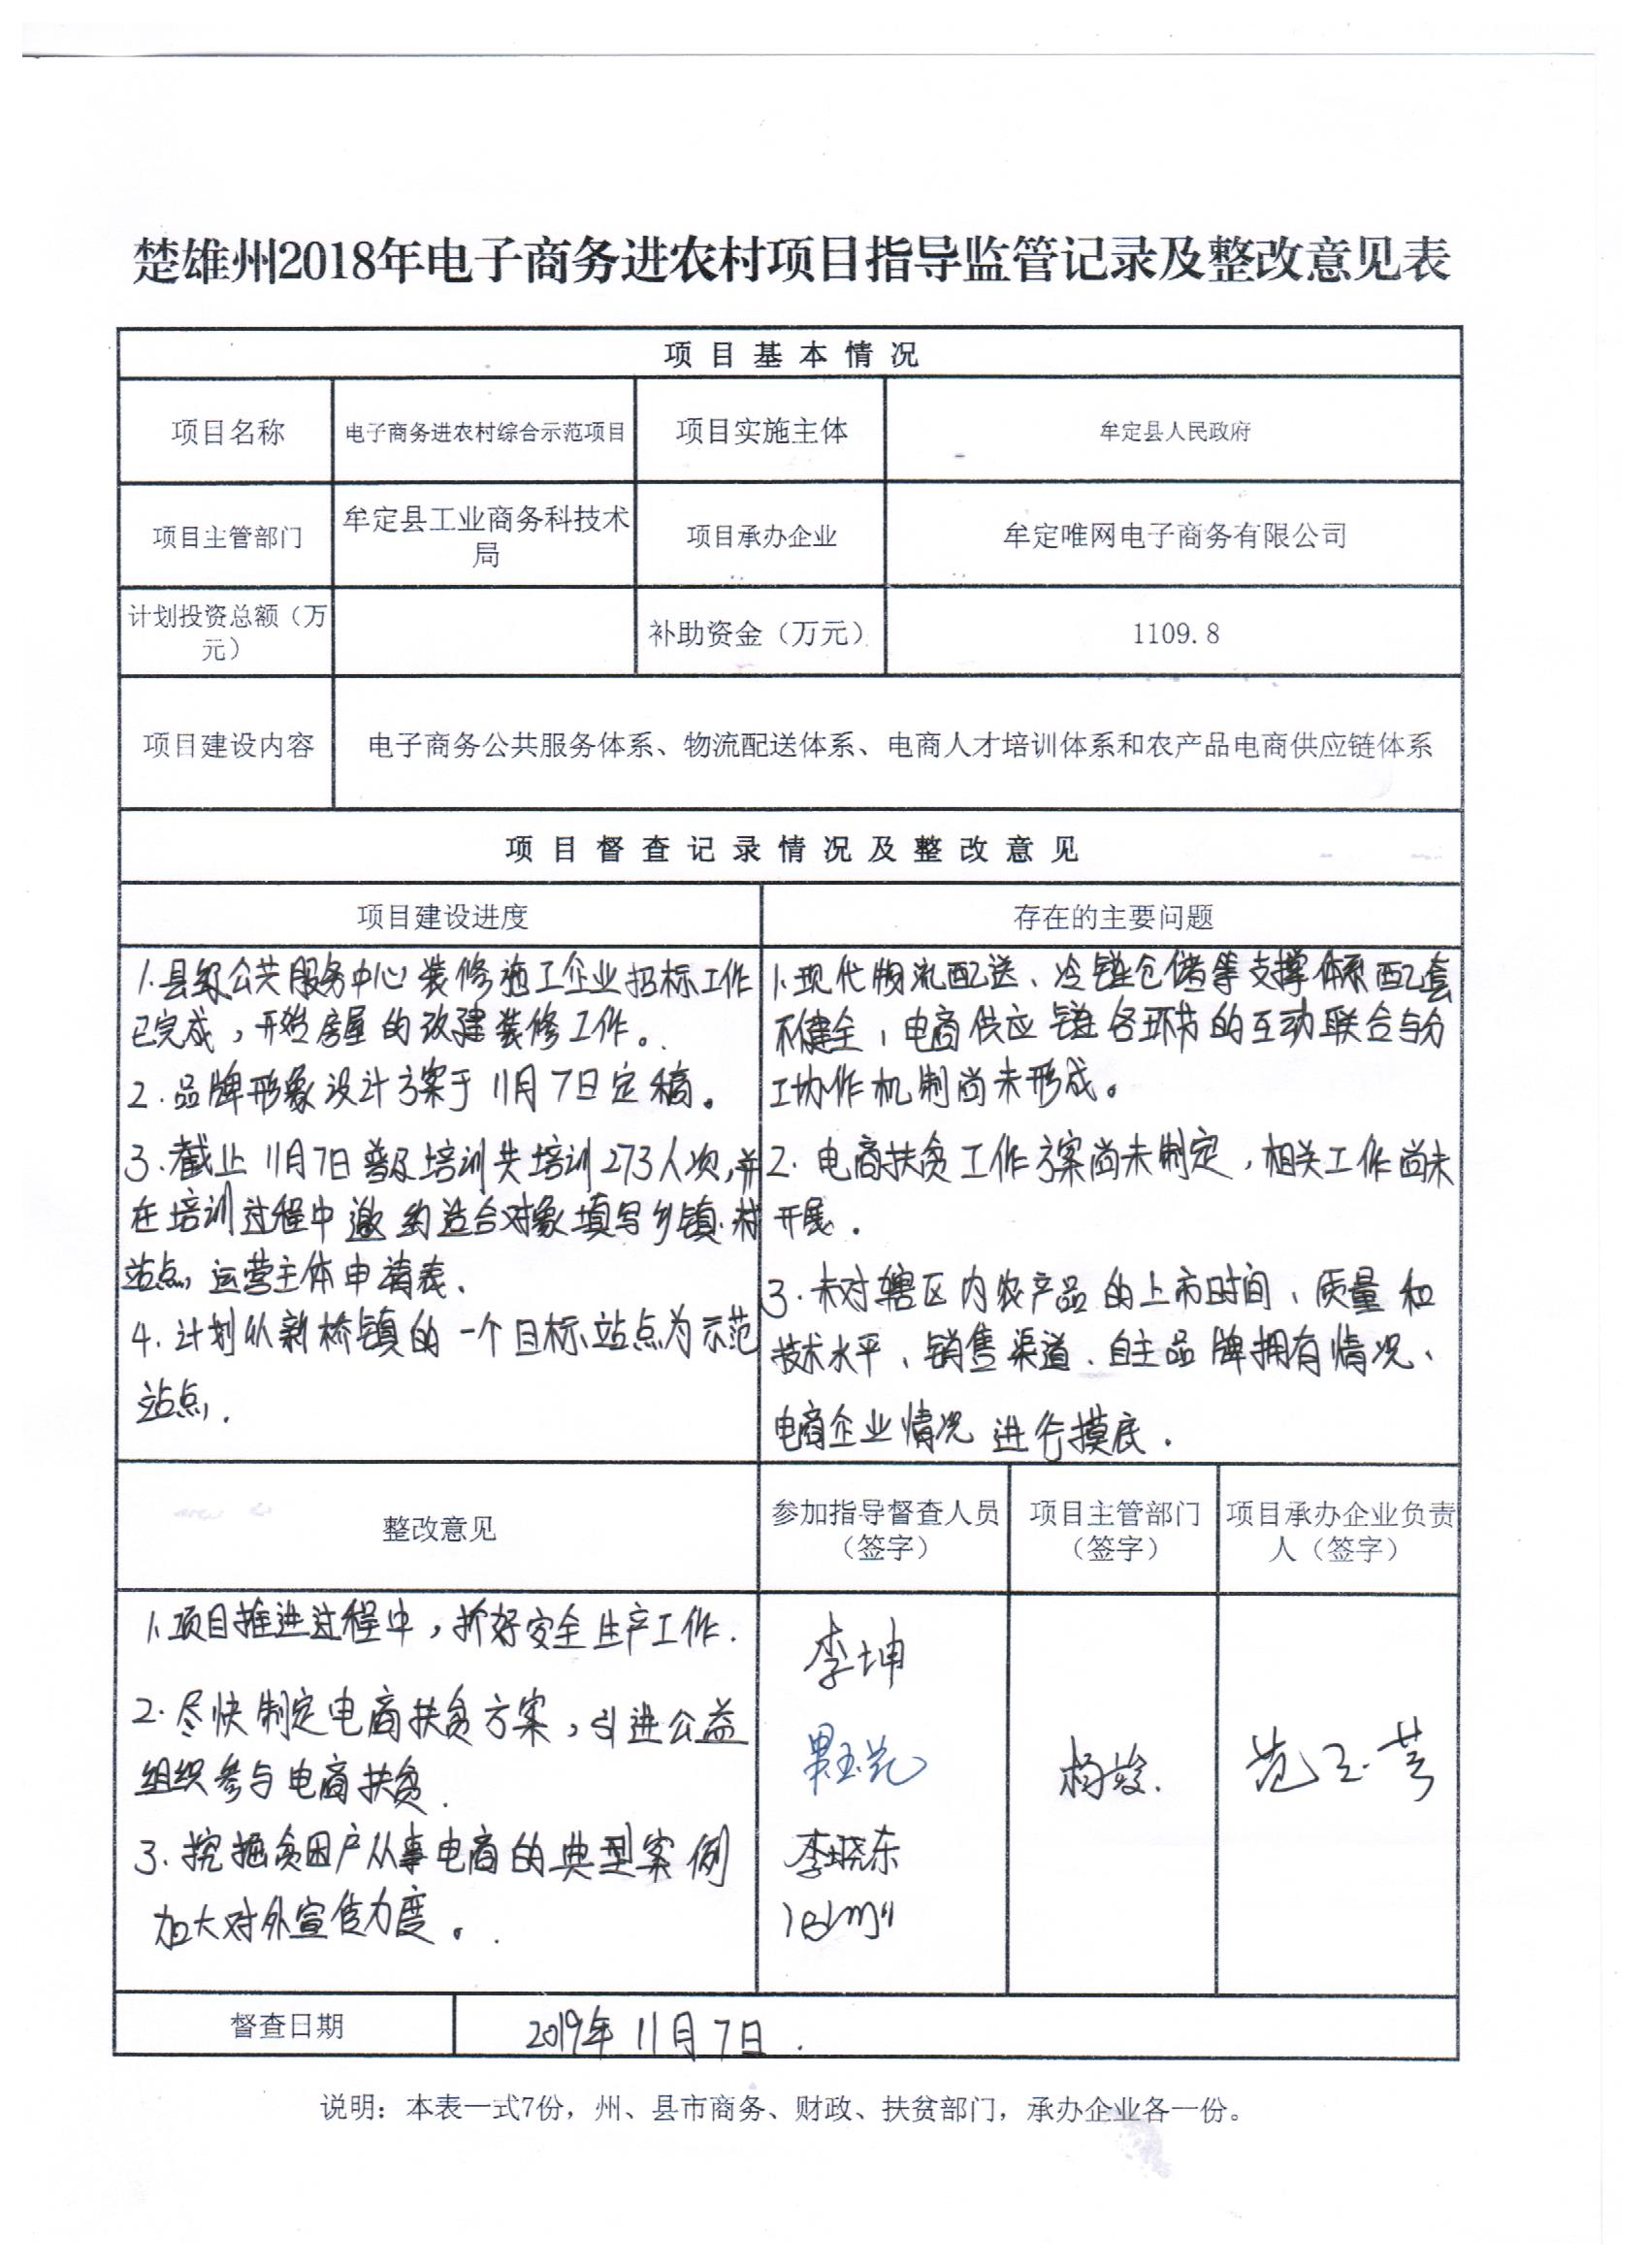 楚雄州2018年电子商务进农村项目指导监管记录及整改意见表
项目基本情况
项目名称
电子商务进农村综合示范项目
项目实施主体
牟定县人民政府
项目主管部门
牟定县工业商务科技术
局
项目承办企业
牟定唯网电子商务有限公司
计划投资总额（万
元）
补助资金（万元）
1109.8
项目建设内容
电子商务公共服务体系、物流配送体系、电商人才培训体系和农产品电商供应链体系
项目督查记录情况及整改意见
项目建设进度
存在的主要问题
1.县级公共服务中心装修施工企业招标工作
已完成，开始房屋的改建装修工作。
2.品牌形象设计方案于11月7日定稿。
3.截止11月7日普及培训共培训273人次，并
在培训过程中邀约适合对象填写乡镇、村
站点运营主体申请表.
4.计划从新桥镇的一个目标站点为示范
站点.
1.现代物流配送、冷链仓储等支撑体系配套
不健全，电商供应链各环节的互动联合与分
工协作机制尚未形成。
2.电商扶贫工作方案尚未制定，相关工作尚未
开展.
3.未对辖区内农产品的上市时间、质量和
技术水平、销售渠道、自主品牌拥有情况、
电商企业情况进行摸底.
整改意见
参加指导督查人员
（签字）
项目主管部门
（签字）
项目承办企业负责
人（签字）
1.项目推进过程中，抓好安全生产工作.
2.尽快制定电商扶贫方案，引进公益
组织参与电商扶贫.
3.挖掘贫困户从事电商的典型案例
加大对外宣传力度。
李坤
李晓东
杨俊.
督查日期
2019年11月7日.
说明：本表一式7份，州、县市商务、财政、扶贫部门，承办企业各一份。